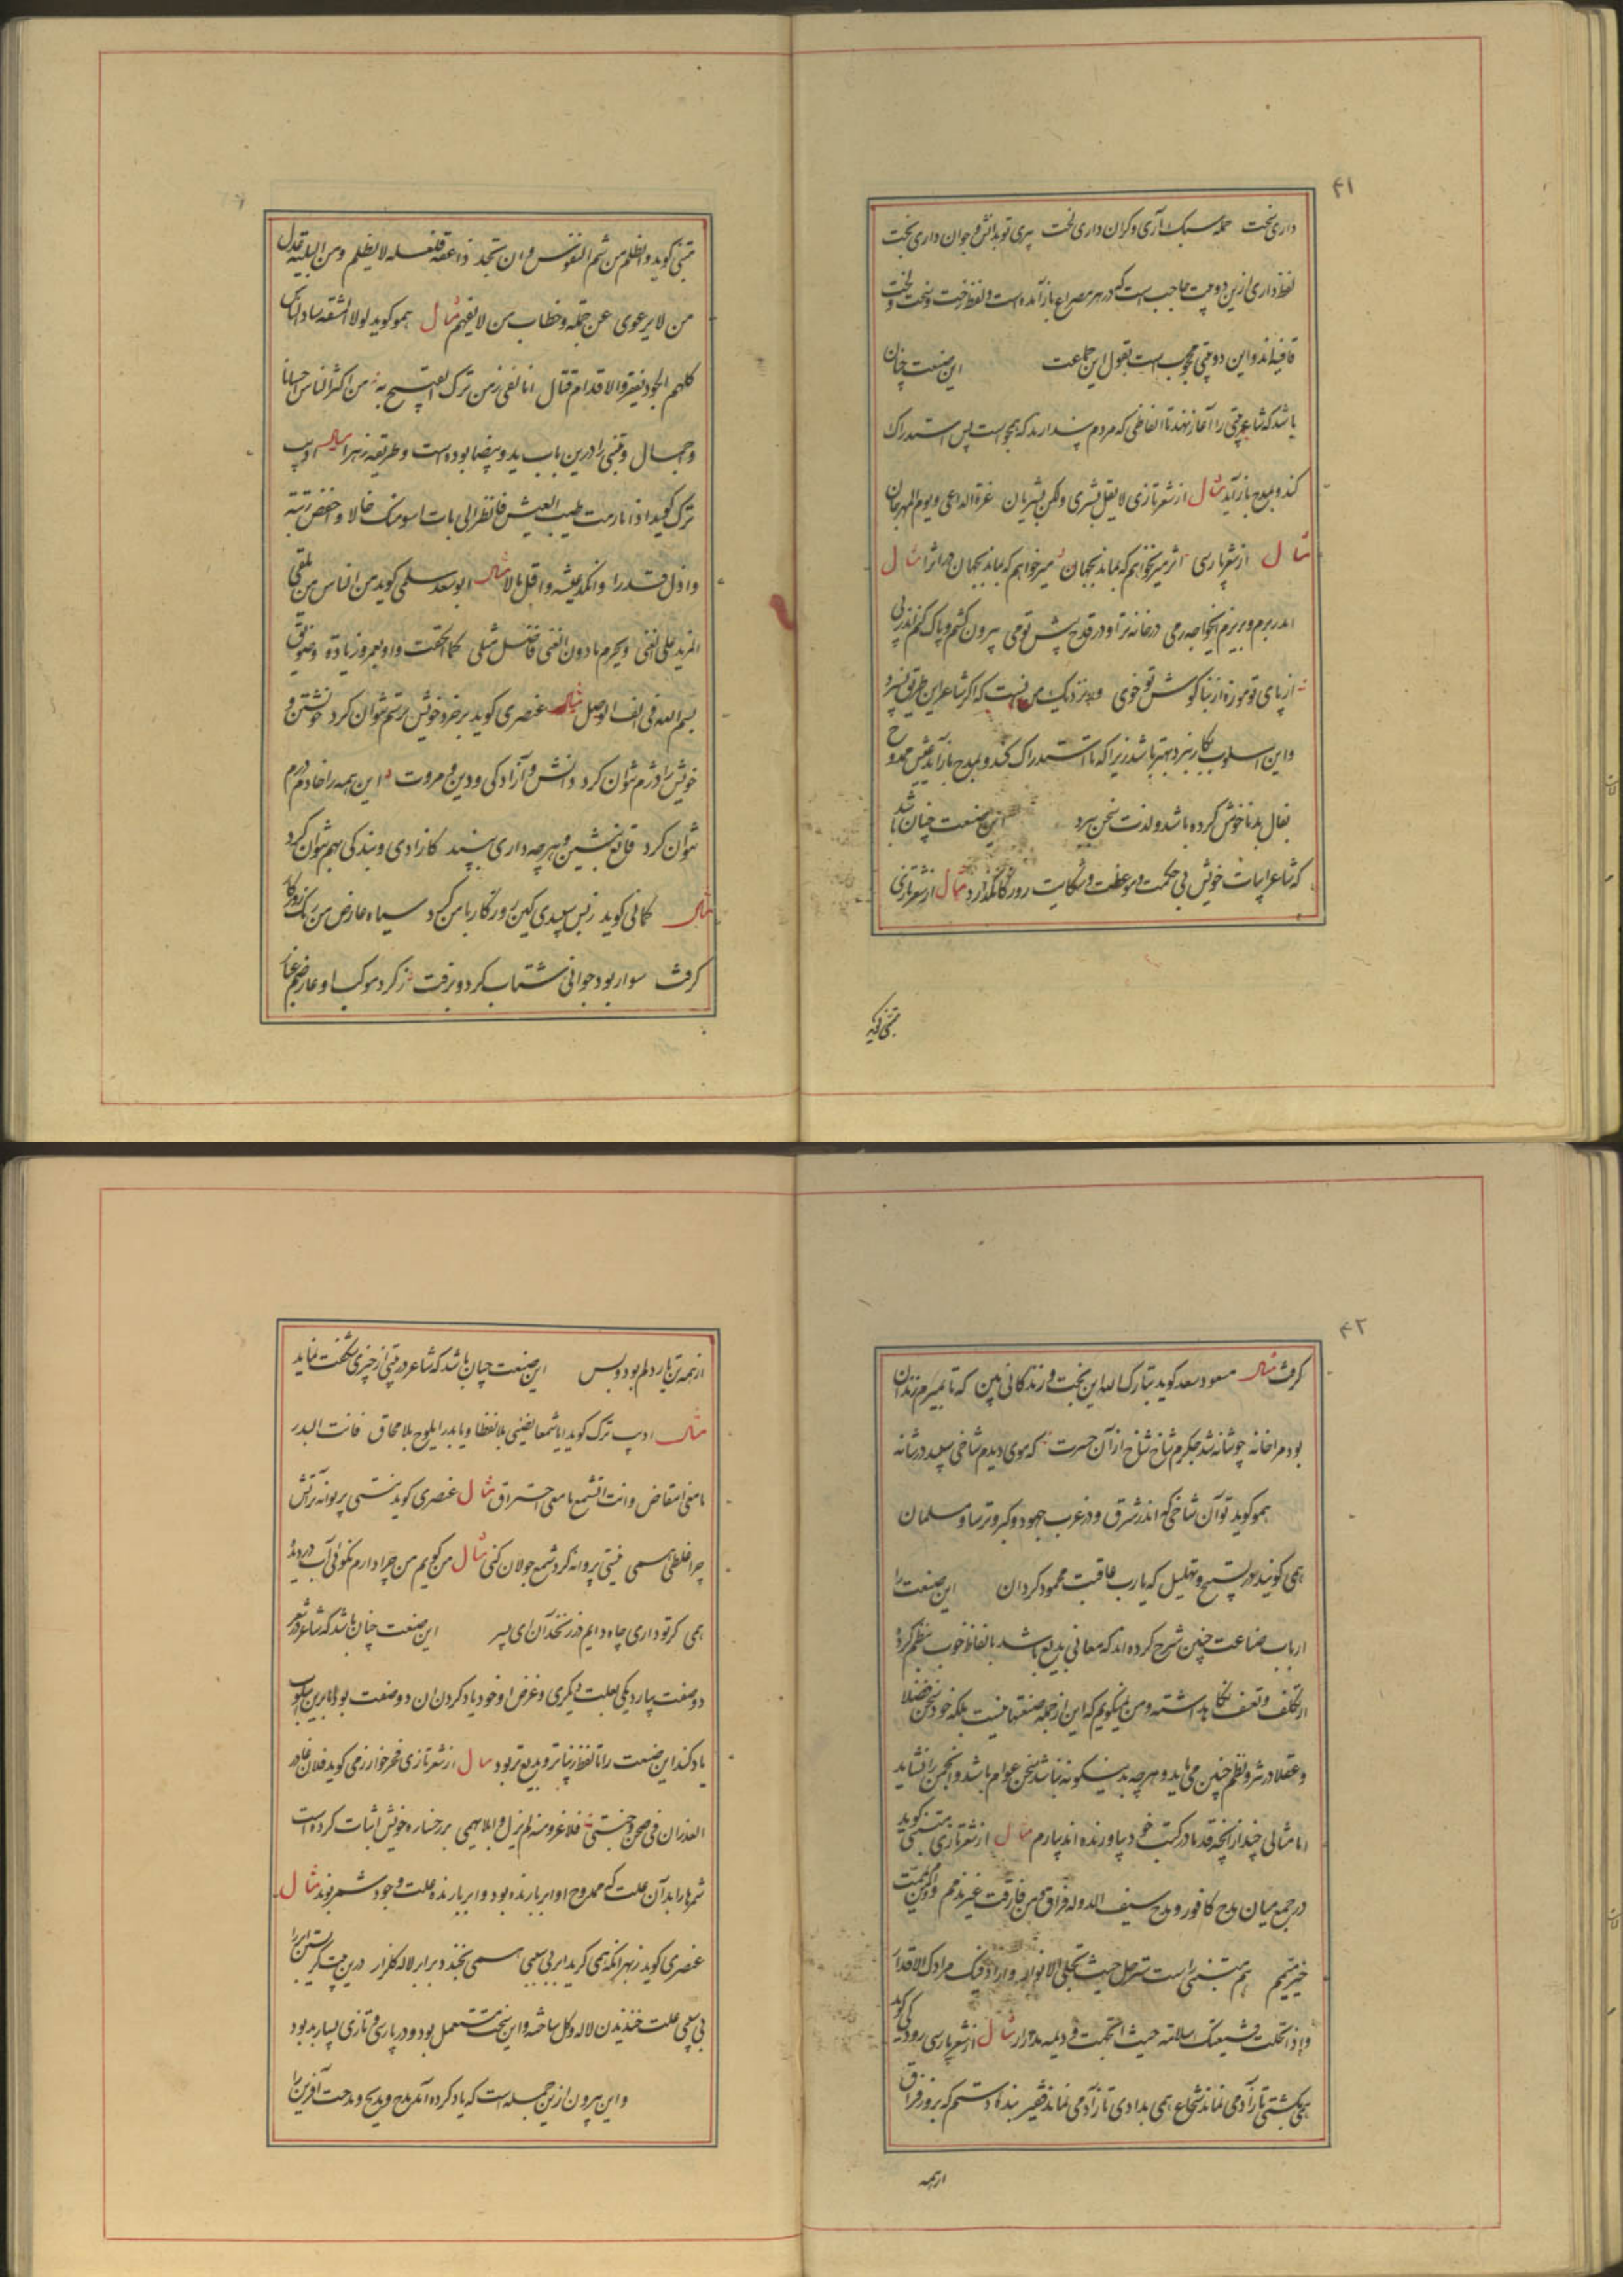 ۴۱
داری تخت حمله سبک آری و گران داری لخت پیری تو بدانش و جوان داری بخت
لفظ داری ازین دو بیت حاجب است که در هر مصراع باز آمده است و لفظ رخت و تخت و لخت
قافیه‌اند و این دو بیتی محجوب است بقول این جماعت این صنعت چنان
باشد که شاعر بیتی را آغاز نهد تا الفاظی که مردم پندارند که هجو است پس استدراک
کند و بمدح باز آید مثال از شعر تازی لا تقل بشری ولکن بشریان غرة الداعی و یوم المهرجان
مثال از شعر پارسی اثر میر نخواهم که بماند بجهان میر خواهم که بماند بجهان در اثرا مثال
از پای تو موزه از بناگوش تو خوی و نزدیک من نیست که اگر شاعر این طریق نسپرد
و این اسلوب بکار نبرد بهتر باشد زیرا که تا استدراک کند و بمدح باز آید عیش ممدوح
بفال بد ناخوش کرده باشد و لذت سخن ببرد این صنعت چنان باشد
که شاعر ابیات خویش بی حکمت و موعظت و شکایت روزگار نگذارد مثال از شعر تازی
متنبی گوید
متنبی گوید والظلم من شیم النفوس وان تجد ذا عفة فلعله لا یظلم ومن البلیة عذل
من لا یرعوی عن جهله وخطاب من لا یفهم مثال همو گوید لولا المشقة ساد الناس
کلهم الجود یفقر والاقدام قتال انا لفی زمن ترک القبیح به من اکثر الناس احسان
و اجمال و متنبی را درین باب ید و بیضا بوده است و طریقه زهرا مثال ادیب
ترک گوید اذا ما رمت طیب العیش فانظر الی بات اسو منک حالا و اخفض رتبة
و اذل قدرا و انکد عیشة و اقل مالا مثال ابو سعد سلمی گوید من الناس من یلقی
المزید علی الغنی ویحرم ما دون الغنی فاضل مثلی کما الحقت واو بعمرو زیادة وضویق
بسم الله فی الف الوصل مثال عنصری گوید بر خرد خویش ستم نتوان کرد خویشتن
خویش را دژم نتوان کرد دانش و آزادگی و دین و مروت این همه را خادم درم
نتوان کرد قانع بنشین و هر چه داری بپسند کازادی و بندگی بهم نتوان کرد
مثال کمالی گوید ز بس سپیدی کین روزگار با من کرد سیاه عارض من رنگ روزگار
گرفت سوار بود جوانی شتاب کرد و برفت ز گرد موکب او عارضم غبار
۴۲
گرفت مثال مسعود سعد گوید تبارک الله این بخت و زندگانی بین که تا بمیرم زندان
بود مرا خانه چو شانه شد جگرم شاخ شاخ از آن حسرت که موی دیدم شاخی سپید در شانه
همو گوید تو آن شاخی که اندر شرق و در غرب جهود و گبر و ترسا و مسلمان
همی گویند در تسبیح و تهلیل که یا رب عاقبت محمود گردان این صنعت را
ارباب صناعت چنین شرح کرده‌اند که معانی بدیع باشد بالفاظ خوب نظم کرده
از تکلف و تعسف نگاه داشته و من میگویم که این از جمله صنعتها نیست بلکه خود سخن فضلا
و عقلا در نثر و نظم چنین می باید و هر چه بدینگونه نباشد سخن عوام باشد و انجمن را نشاید
اما مثالی چند از آنچه قدما در کتب خود بیاورنده اند بیارم مثال از شعر تازی متنبی گوید
در جمع میان مدح کافور و مدح سیف الدوله فراق ومن فارقت غیر مذمم وام ومن یممت
خیر میمم هم متنبی راست ترحل حیث تحلی الانوار واراد فیک مرادک الاقدار
و اذا ارتحلت فشیعتک سلامة حیث اتجهت و دیمة مدرار مثال از شعر پارسی رودکی گوید
همی بکشتی تا آدمی نماند شجاع همی بدادی تا آدمی نماند فقیر بنده دانستم که بروز فراق
از همه
از همه تن یار دلم بود و بس این صنعت چنان باشد که شاعر در بیتی از چیزی شگفت نماید
مثال ادیب ترک گوید ایا شمعا یضیئ بلا انطفاء و یا بدرا یلوح بلا محاق فانت البدر
ما معنی انتقاص وانت الشمع ما معنی احتراق مثال عنصری گوید نیستی پروانه آتش
چرا غلطی همی نیستی پروانه گرد شمع جولان کنی مثال من گویم من چرا دارم نگوئی آب در دیده
همی گر تو داری چاه دایم در زنخدان ای پسر این صنعت چنان باشد که شاعر در شعر
دو صفت بیارد یکی بعلت دیگری و غرض او خود یاد کردن آن دو صفت بود اما برین اسلوب
یاد کند این صنعت را تا لفظ زیباتر و بدیع‌تر بود مثال از شعر تازی فخر خوارزمی گوید
شمرها را بدان علت که ممدوح او ابر بارنده بود و ابر بارنده علت وجود شمر بوند مثال
عنصری گوید ز بهر آنکه همی گرید ابر بی سببی همی بخندد برابر لاله و گلزار درین بیت گریستن ابر را
بی سببی علت خندیدن لاله و گل ساخته و این سخت مستعمل بود و در پارسی و تازی بسیار بود
و این بیرون ازین جمله است که یاد کرده آمد مدح و مدیح و مدحت آفرین را